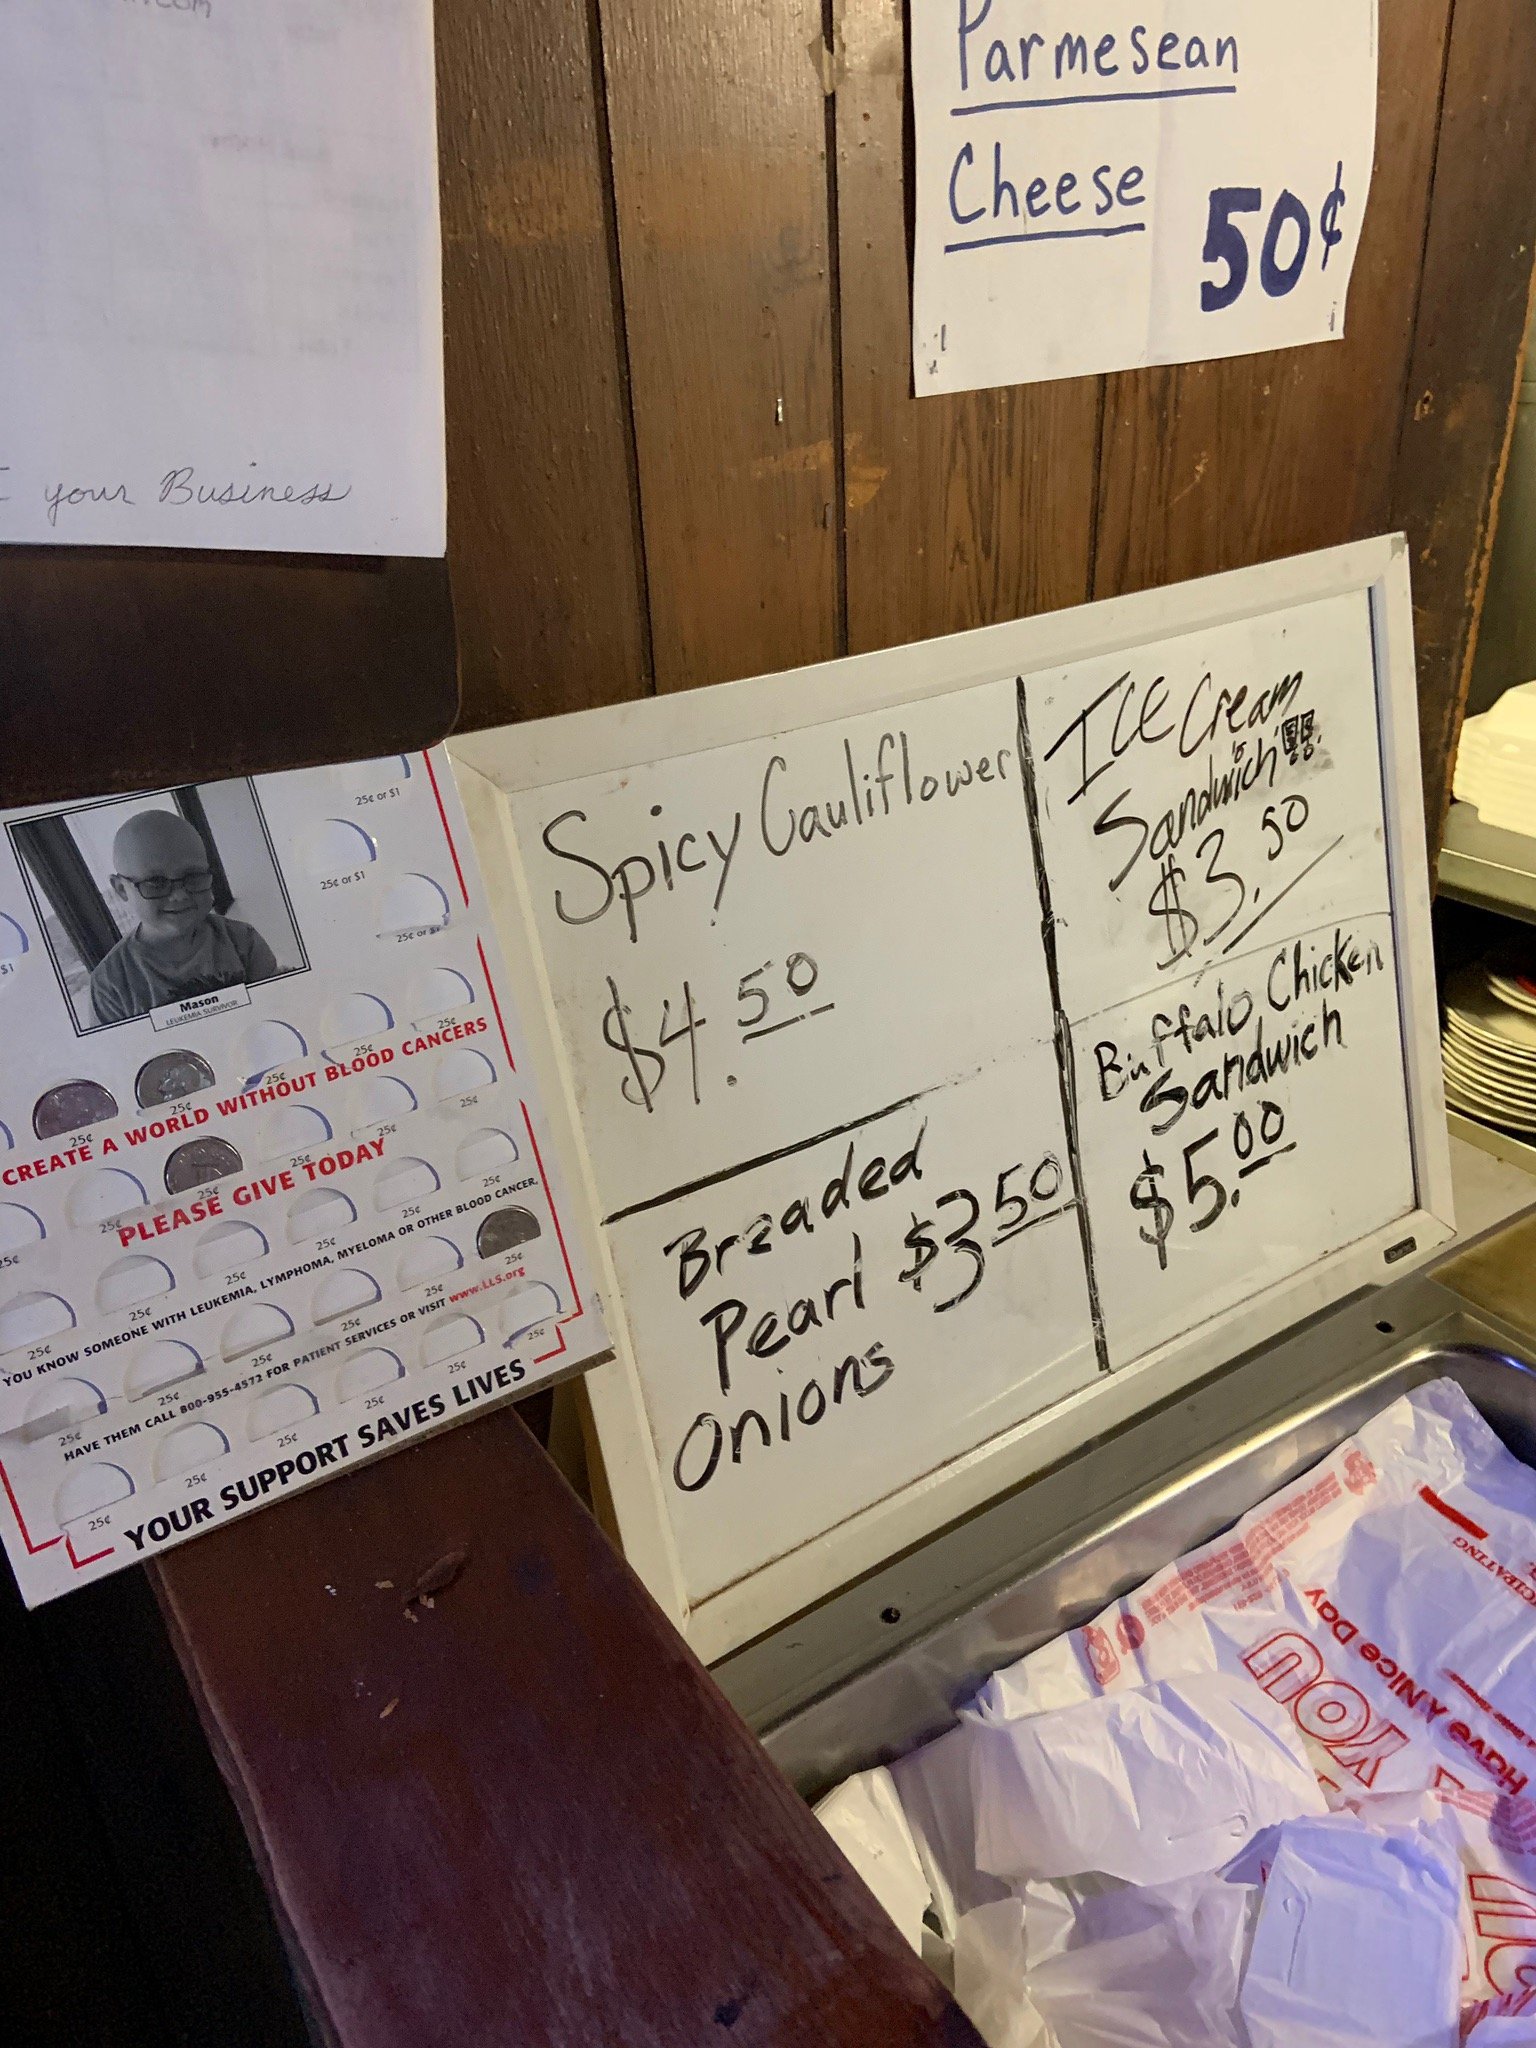 your Business
Parmesean
Cheese
50¢
Spicy Cauliflower
$4.50
Breaded
Pearl $3.50
Onions
ICE Cream
Sandwich
$3.50
Buffalo Chicken
Sandwich
$5.00
25¢ or $1
25¢ or $1
25¢ or
$1
Mason
LEUKEMIA SURVIVOR
25¢
25¢
25¢
25¢
25¢
CREATE A WORLD WITHOUT BLOOD CANCERS
25¢
25¢
25¢
25¢
PLEASE GIVE TODAY
25¢
25¢
25¢
25¢
25¢
YOU KNOW SOMEONE WITH LEUKEMIA, LYMPHOMA, MYELOMA OR OTHER BLOOD CANCER,
25¢
25¢
25¢
25¢
25¢
HAVE THEM CALL 800-955-4572 FOR PATIENT SERVICES OR VISIT www.LLS.org
25¢
25¢
25¢
25¢
25¢
25¢
YOUR SUPPORT SAVES LIVES
YOU
Have A Nice Day